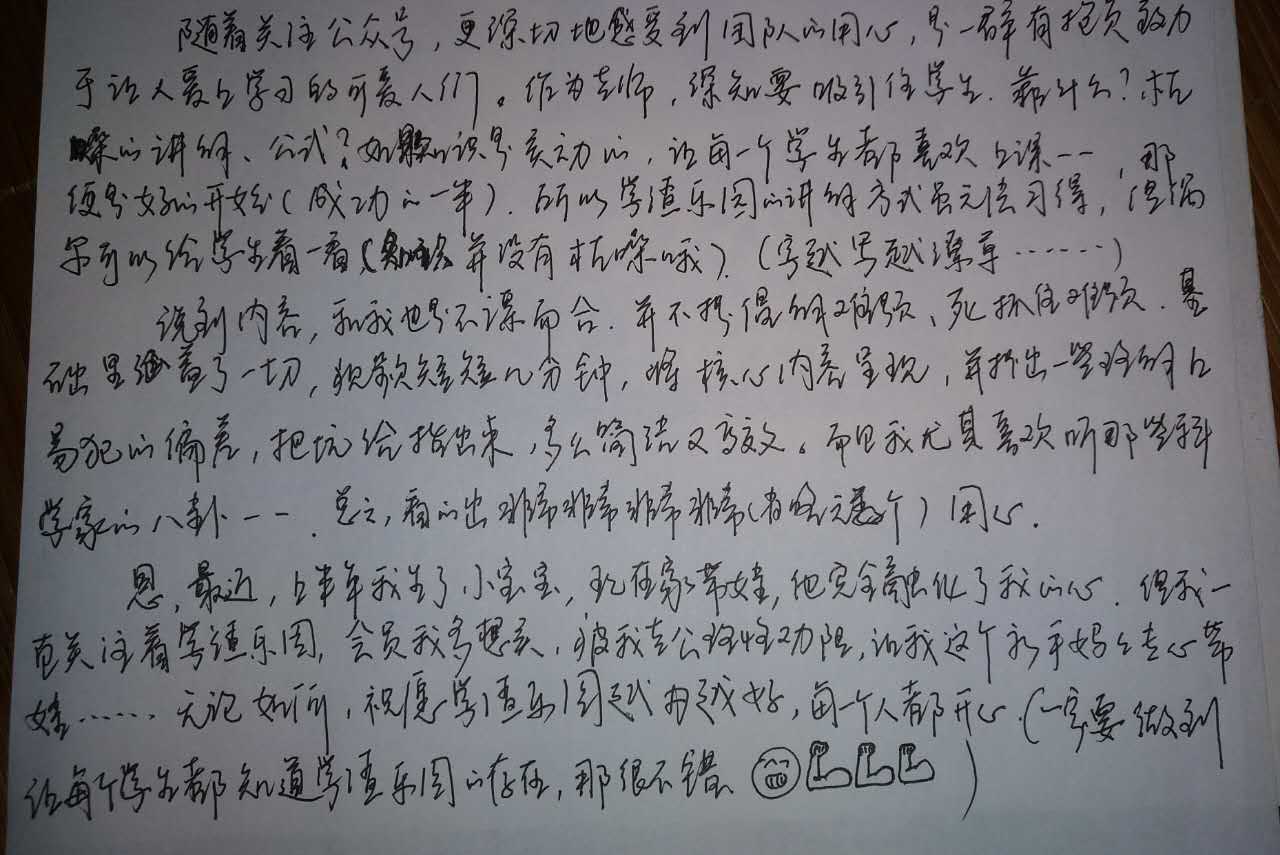 随着关注公众号，更深切地感受到团队的用心，是一群有抱负致力
于让人爱上学习的可爱人们。作为老师，深知要吸引住学生．靠什么？枯
燥的讲解、公式？如果知识是灵动的，让每一个学生都喜欢上课……，那
便是好的开始（成功的一半）．所以学渣乐园的讲解方式虽无法习得，但偶
尔可以给学生看一看（并没有枯燥哦）．（字越写越潦草……）
说到内容，和我也是不谋而合．并不提倡解难题、死抓住难题．基
础里涵盖了一切，视频短短几分钟，将核心内容呈现，并指出一些理解上
易犯的偏差，把坑给指出来，多么简洁又高效。而且我尤其喜欢听那些科
学家的八卦……．总之，看的出非常非常非常非常（省略无数个）用心．
恩，最近，上半年我生了小宝宝，现在家带娃，他完全融化了我的心．但我一
直关注着学渣乐园，会员我多想买，被我老公理性功阻，让我这个新手妈妈专心带
娃……无论如何，祝愿学渣乐园越办越好，每一个人都开心．（一定要做到
让每个学生都知道学渣乐园的存在，那很不错）